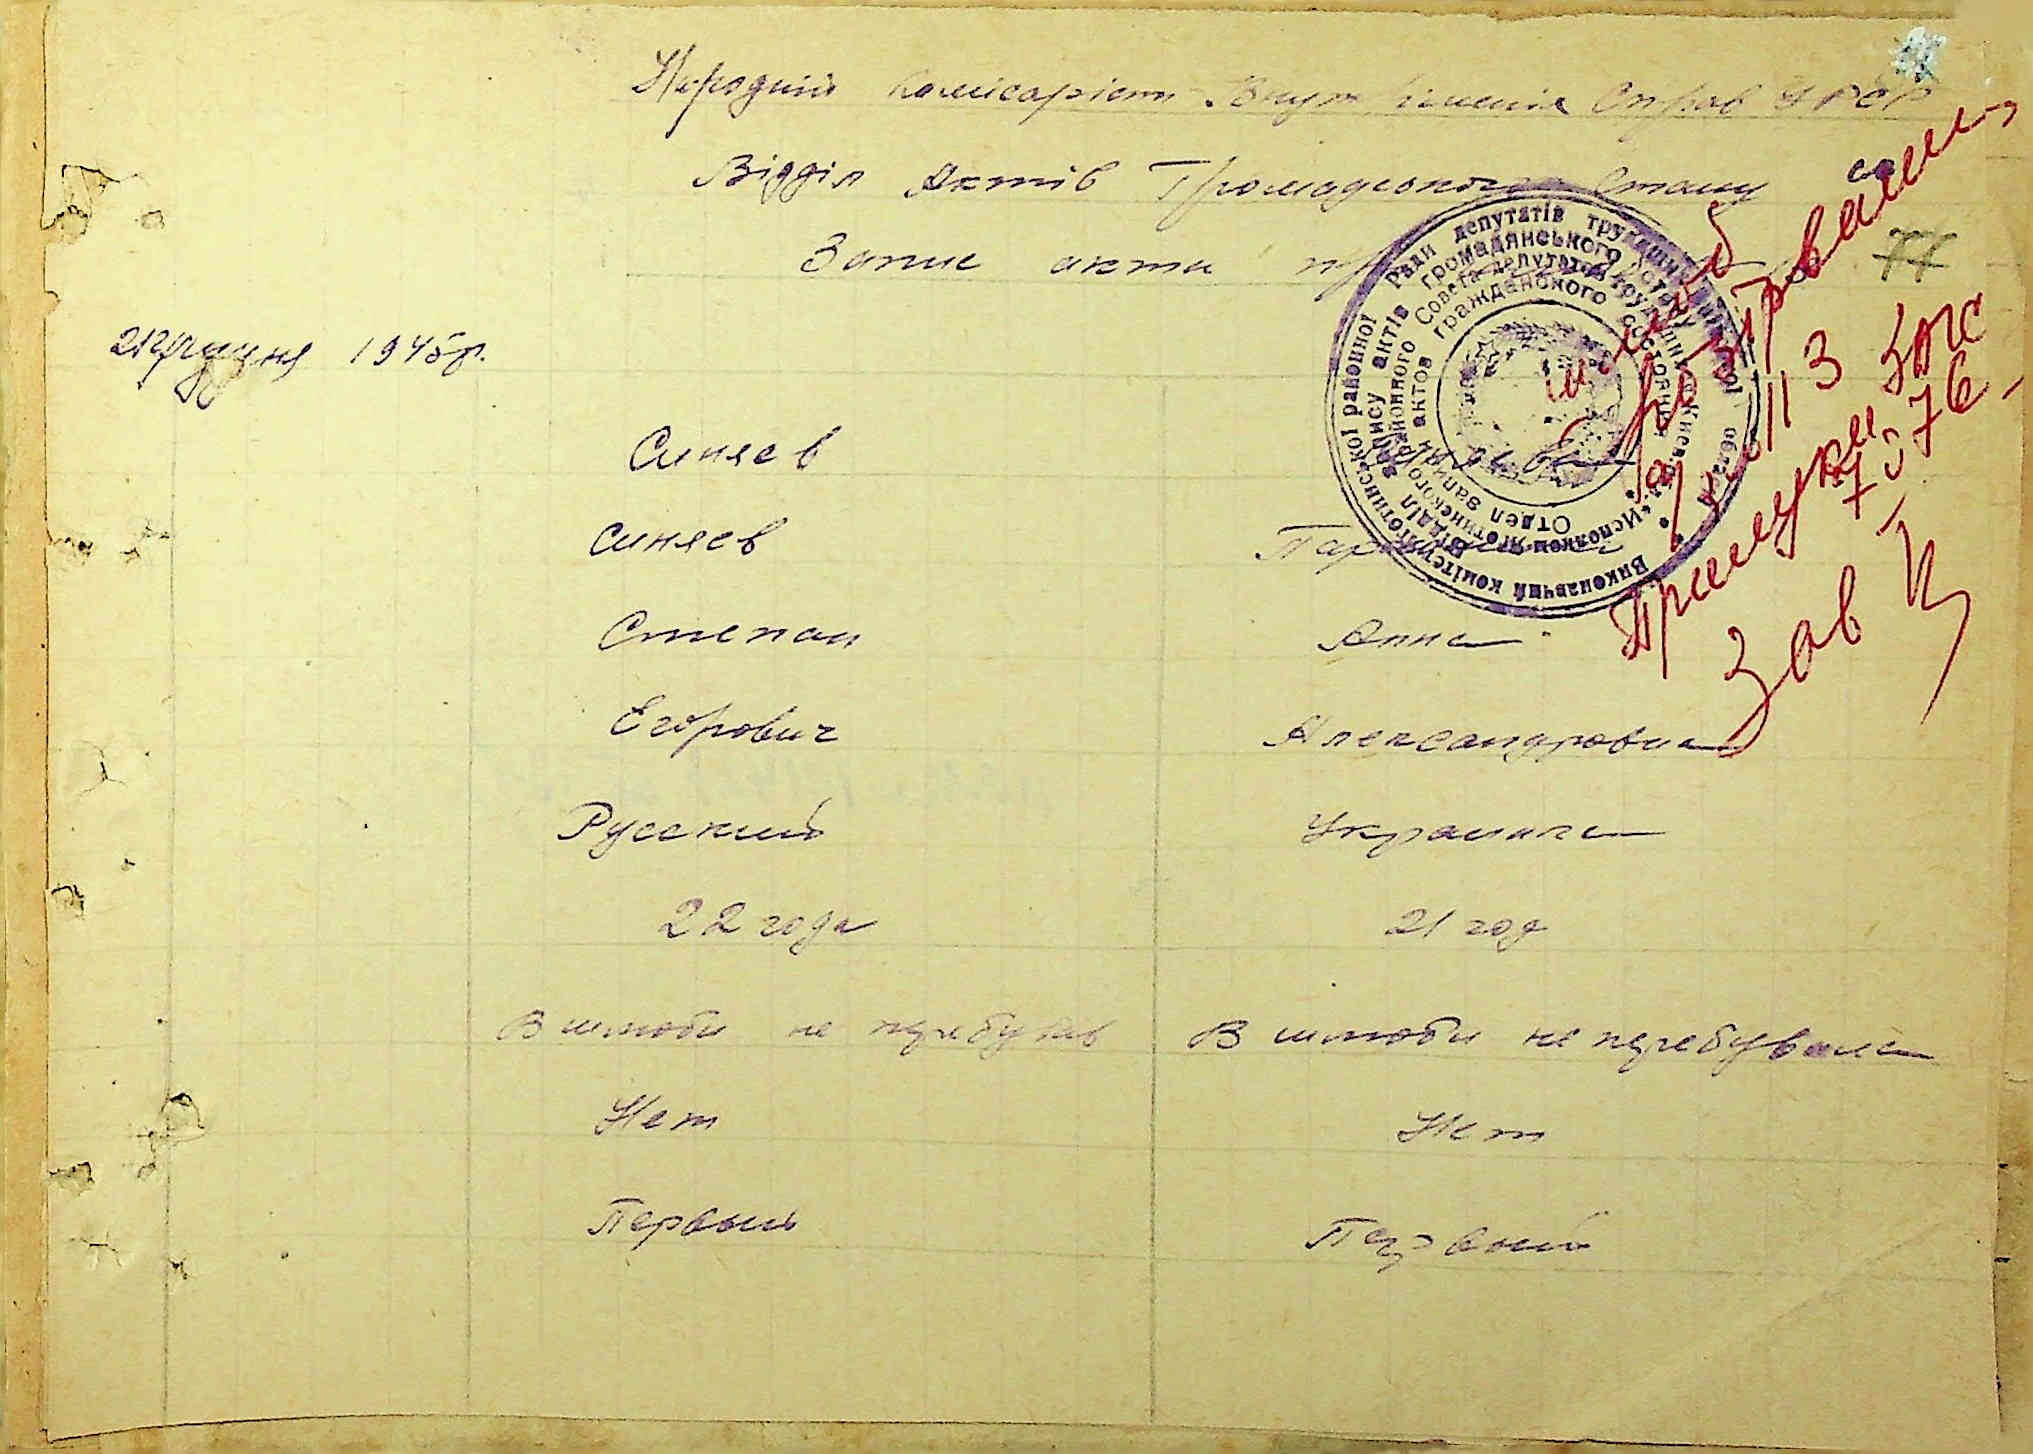 Народний Комісаріат Внутрішніх Справ УРСР
Відділ Актів Громадського Стану
Запис акта про
21 грудня 1945 р.
Синяев
Синяев
Степан Анна
Егорович Александровна
Русский Украинка
22 года 21 год
В шлюби не перебував В шлюби не перебувала
Нет Нет
Первый Первый
Виконавчий комітет Яготинської районної Ради депутатів трудящих Київської області
Відділ запису актів громадянського стану
Исполком Яготинского районного Совета депутатов трудящихся
Отдел записи актов гражданского состояния
шлюб
розірвано
а/з № 113
7.5.76
Зав